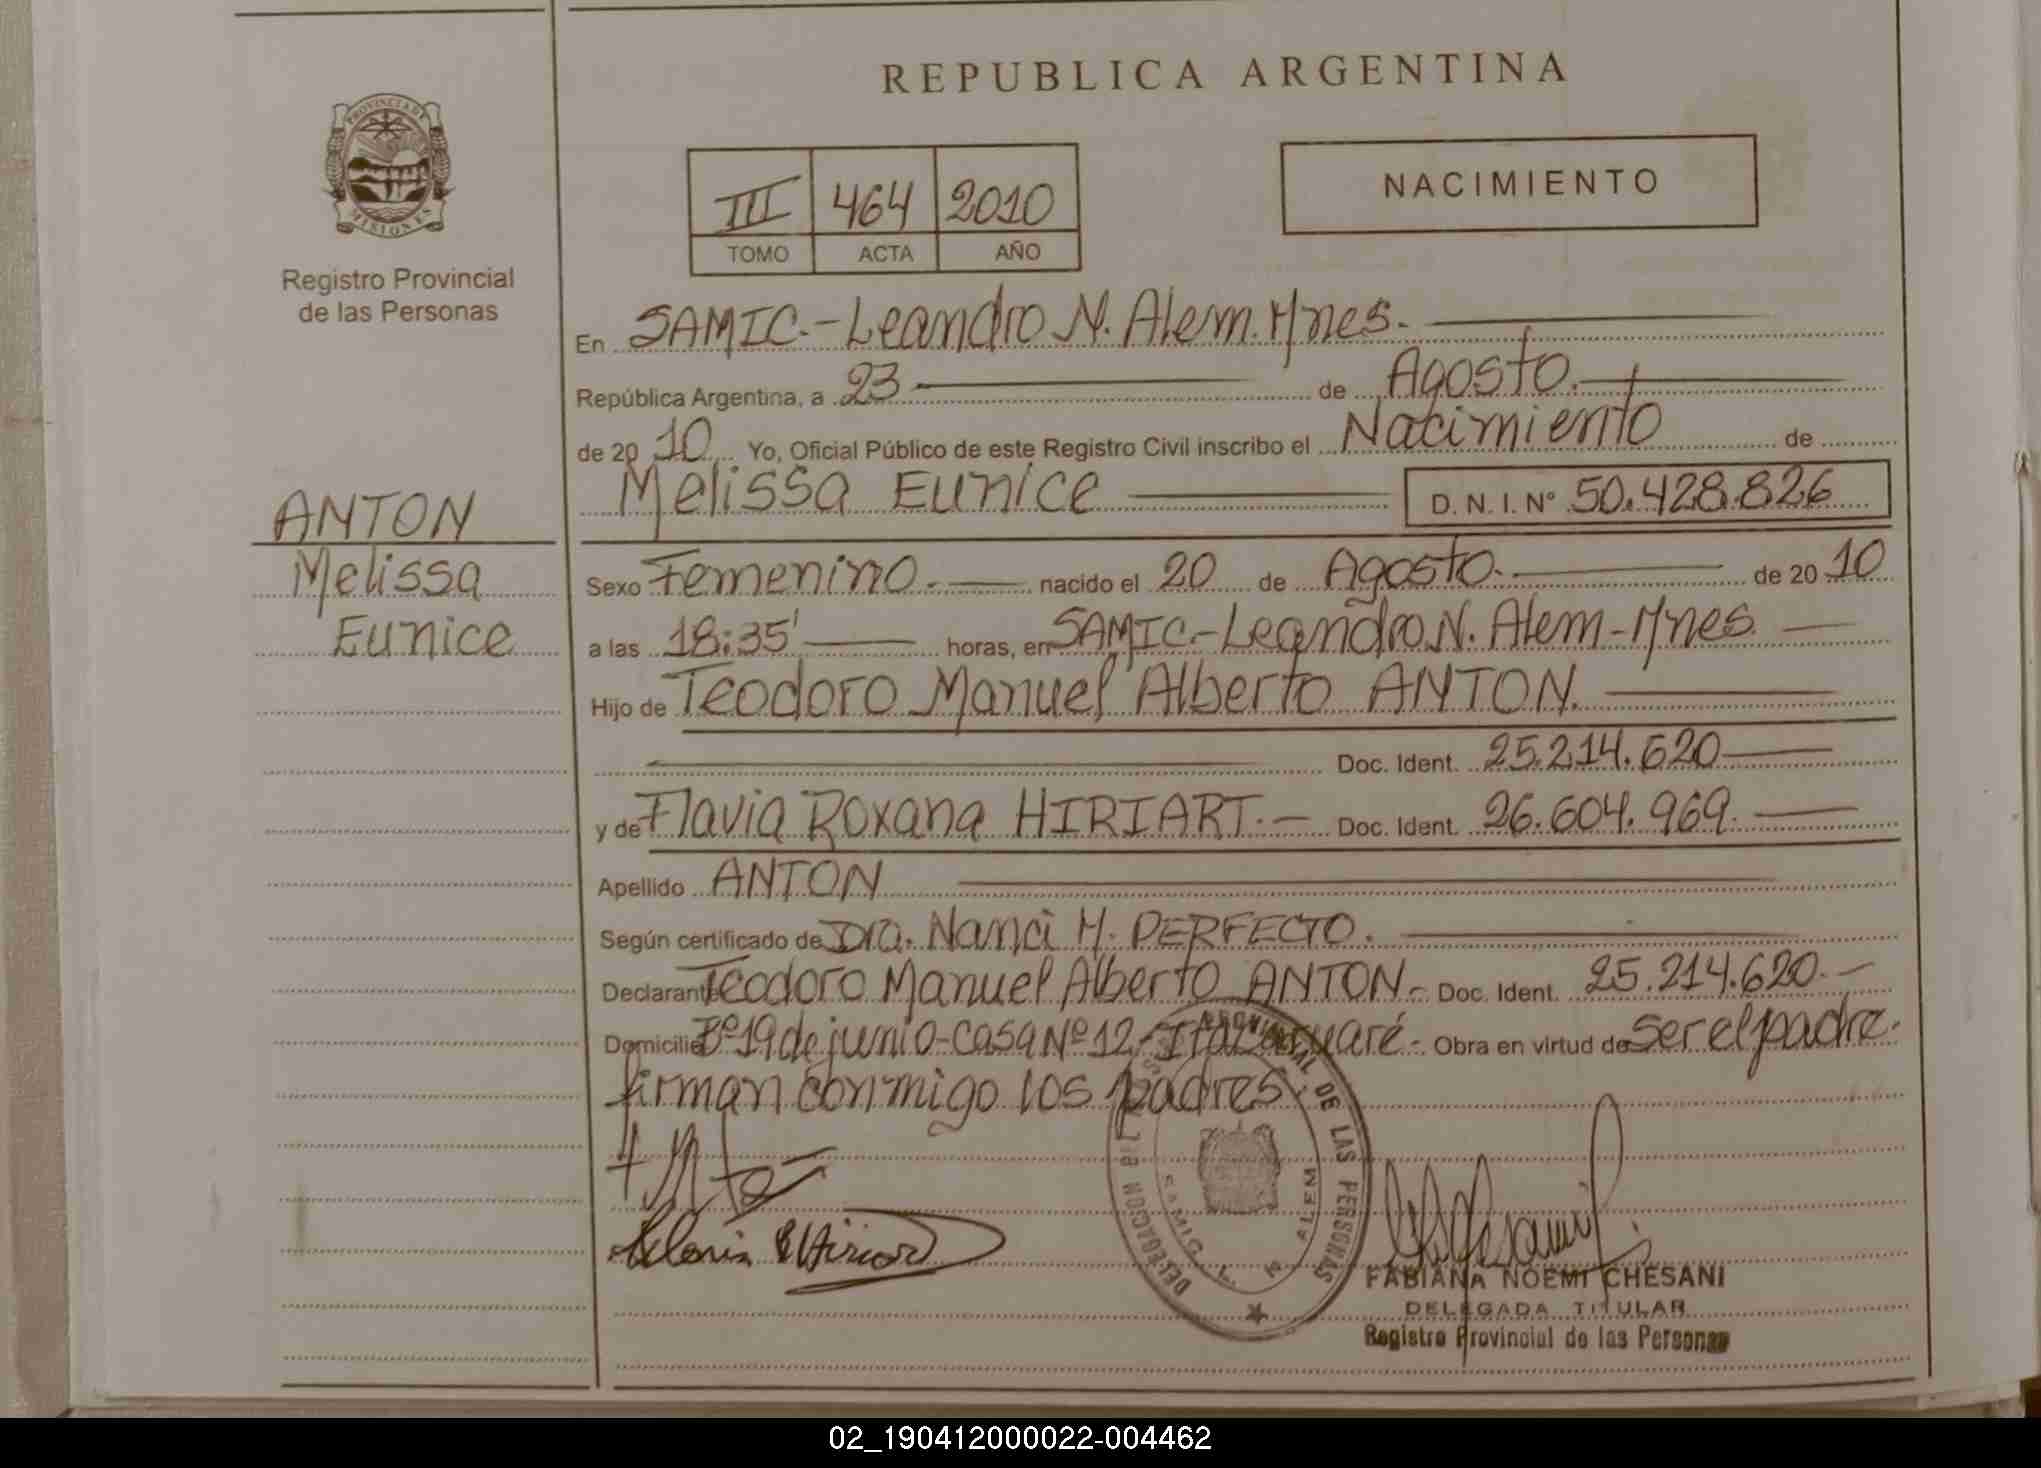 REPUBLICA ARGENTINA
PROVINCIA DE
MISIONES
Registro Provincial
de las Personas
III 464 2010
TOMO ACTA AÑO
NACIMIENTO
En SAMIC.-Leandro N. Alem. Mnes.
República Argentina, a 23 de Agosto.
de 2010 Yo, Oficial Público de este Registro Civil inscribo el Nacimiento de
Melissa Eunice D. N. I. Nº 50.428.826
ANTON
Melissa
Eunice
Sexo Femenino. nacido el 20 de Agosto. de 2010
a las 18:35' horas, en SAMIC.-Leandro N. Alem-Mnes.
Hijo de Teodoro Manuel Alberto ANTON.
Doc. Ident. 25.214.620
y de Flavia Roxana HIRIART.- Doc. Ident. 26.604.969.
Apellido ANTON
Según certificado de Dra. Nanci H. PERFECTO.
Declarante Teodoro Manuel Alberto ANTON.- Doc. Ident. 25.214.620.-
Domicilio Bº 19 de junio-casa Nº 12,-Itacaruaré- Obra en virtud de ser el padre.
firman conmigo los padres.
DE LAS PERSONAS
DELEGACION
SAMIC L. N. ALEM
FABIANA NOEMI CHESANI
DELEGADA TITULAR
Registro Provincial de las Personas
02_190412000022-004462